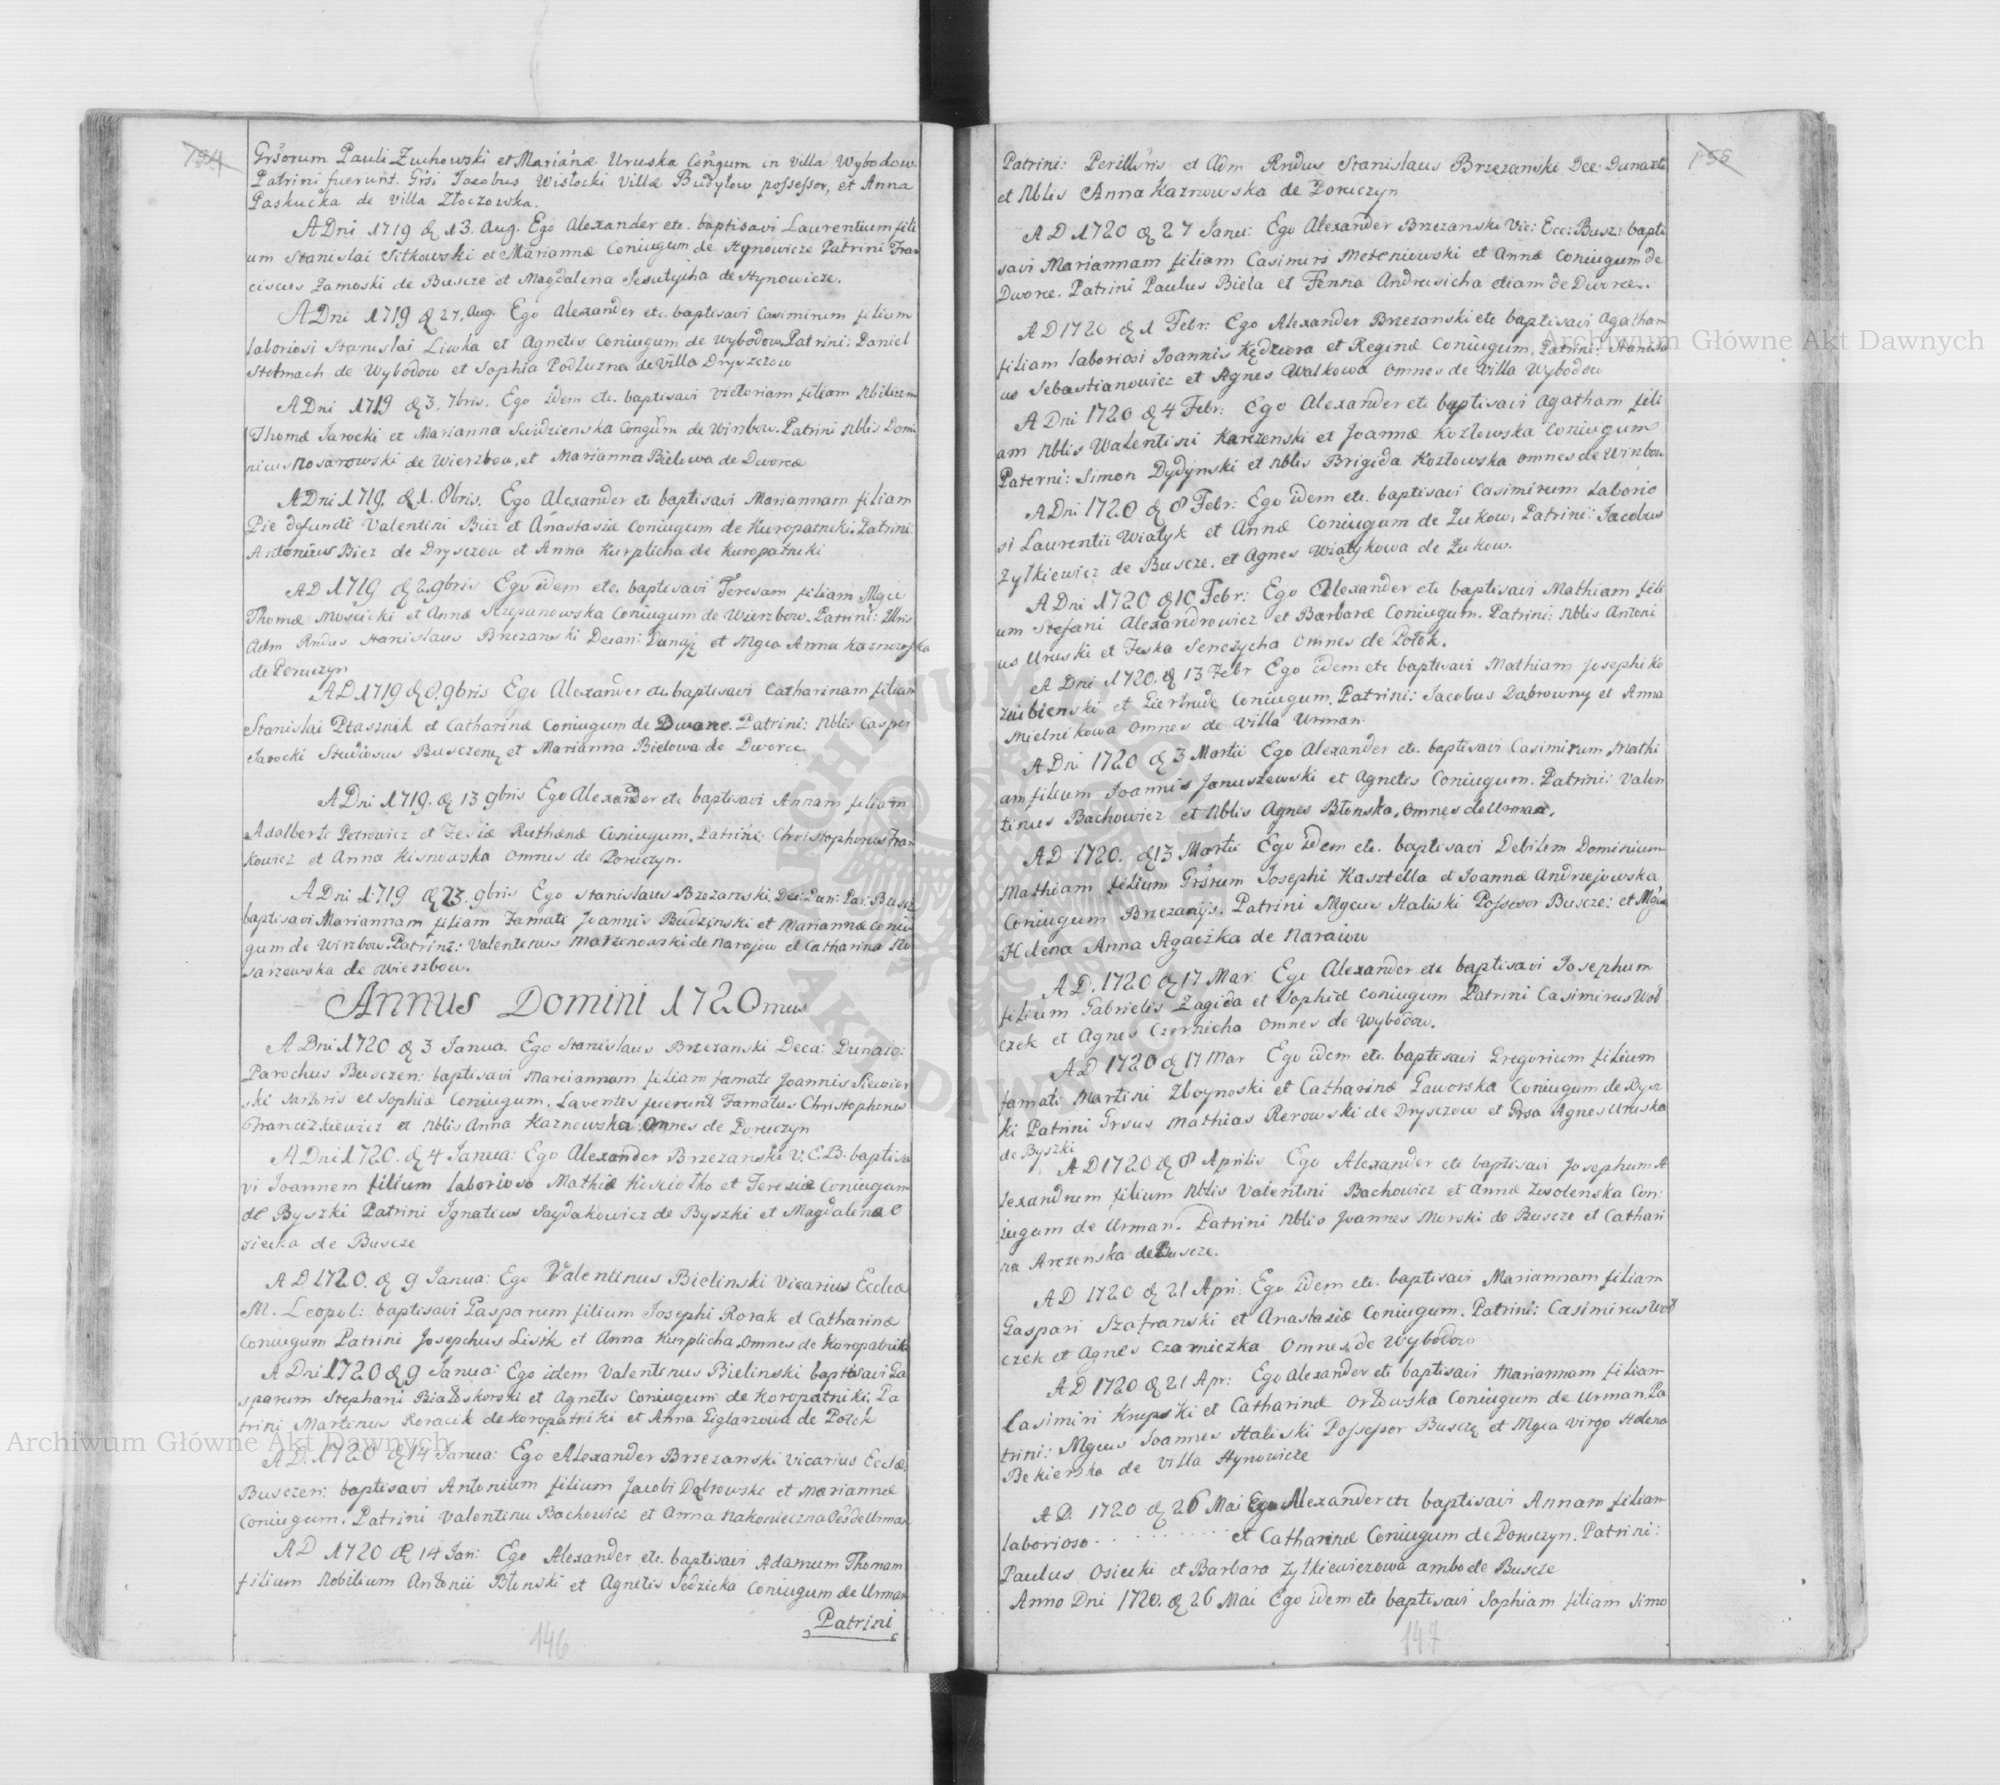 154
Grsorum Pauli Zuchowski et Marianæ Uruska Congum in Villa Wybodow.
Patrini fuerunt. Grsi Jacobus Wisłocki Villæ Budyłow possessor, et Anna
Paskucka de Villa Złoczowka.
A Dni 1719 d 13. Aug. Ego Alexander etc. baptisavi Laurentium fili
um Stanislai Sitkowski et Mariannæ Coniugum de Hynowicze Patrini Fran
ciscus Zamoski de Buscze et Magdalena Jesutycha de Hynowicze.
A Dni 1719 d 27. Aug. Ego Alexander etc. baptisavi Casimirum filium
laboriosi Stanislai Liwka et Agnetis Coniugum de Wybodow Patrini: Daniel
Stelmach de Wybodow et Sophia Podluzna de Villa Dryszczow
A Dni 1719 d 3. 7bris. Ego idem etc. baptisavi Victoriam filiam Nbilium
Thomæ Jarocki et Marianna Swidzienska Congum de Wirzbow. Patrini Nblis Domi
nicus Nosarowski de Wierzbow, et Marianna Bielowa de Dworce
A Dni 1719. d 1. 8bris. Ego Alexander etc baptisavi Mariannam filiam
Pie defuncti Valentini Biez et Anastasiæ Coniugum de Kuropatniki. Patrini:
Antonius Biez de Drysczow et Anna Kurplicha de Kuropatniki
A D 1719 d 2. 9bris Ego idem etc. baptisavi Teresam filiam Mgci
Thomæ Mościcki et Annæ Szczepanowska Coniugum de Wierzbow. Patrini: Illris
Adm Rndus Stanislaus Brzezanski Decan: Dunaj: et Mgca Anna Kaznowska
de Poruczyn
A D 1719 d 8. 9bris Ego Alexander etc baptisavi Catharinam filiam
Stanislai Ptasznik et Catharinæ Coniugum de Dworce. Patrini: Nblis Casper
Jarocki Studiosus Busczen, et Marianna Bielowa de Dworce
A Dni 1719. d 13 9bris Ego Alexander etc baptisavi Annam filiam
Adalberti Petrowicz et Zesiæ Ruthenæ Coniugum. Patrini: Christophorus Fran
kowicz et Anna Kisnowska omnes de Poruczyn.
A Dni 1719 d 23. 9bris Ego Stanislaus Brzezanski Dec: Dun: Par: Buscz
baptisavi Mariannam filiam Famati Joannis Budzinski et Mariannæ Coniu
gum de Wirzbow. Patrini: Valentinus Marzenowski de Narajow et Catharina No
sarzewska de Wierzbow.
Annus Domini 1720mus
A Dni 1720 d 3 Janua. Ego Stanislaus Brzezanski Deca: Dunaio:
Parochus Busczen: baptisavi Mariannam filiam famati Joannis Siewier
ski Sartoris et Sophiæ Coniugum. Laventes fuerunt Famatus Christophorus
Franciszkiewicz et Nblis Anna Kaznowska omnes de Poruczyn
A Dni 1720. d 4 Janua: Ego Alexander Brzezanski V. E. B. baptisa
vi Joannem filium laborioso Mathiæ Kosciołko et Teresiæ Coniugum
de Byszki Patrini Ignatius Saydakowicz de Byszki et Magdalena O
siecka de Buscze
A D 1720. d 9 Janua: Ego Valentinus Bielinski Vicarius Ecclæ
M. Leopol: baptisavi Gasparum filium Josephi Rorak et Catharinæ
Coniugum Patrini Josephus Lisik et Anna Kurplicha. Omnes de Koropatniki
A Dni 1720 d 9 Janua: Ego idem Valentinus Bielinski baptisavi Ga
sparum Stephani Białoskorski et Agnetis Coniugum de Koropatniki. Pa
trini Martinus Roracik de Koropatniki et Anna Geglarzowa de Potok
A D. 1720 d 14 Janua: Ego Alexander Brzezanski Vicarius Ecclæ.
Busczen: baptisavi Antonium filium Jacobi Dąbrowski et Mariannæ
Coniugum. Patrini Valentinu Bachowicz et Anna Nakonieczna Oes de Urman
A D 1720 d 14 Jan: Ego Alexander etc. baptisavi Adamum Thomam
filium Nobilium Antonii Błonski et Agnetis Sedzicka Coniugum de Urman
Patrini
146
155
Patrini: Perillüris et Adm Rndus Stanislaus Brzezanski Dec: Dunaxtn
et Nblis Anna Kaznowska de Poruczyn
A D 1720 d 27 Janu: Ego Alexander Brzezanski Vic: Ecc: Busz: bapti
savi Mariannam filiam Casimiri Meteniowski et Annæ Coniugum de
Dworce. Patrini Paulus Biela et Fenna Andrusicha etiam de Dworce.
A D 1720 d 1 Febr: Ego Alexander Brzezanski etc baptisavi Agatham
filiam laboriosi Joannis Kędziora et Reginæ Coniugum. Patrini: Stanisla
us Sebastianowicz et Agnes Walkowa omnes de Villa Wybodow
A Dni 1720 d 4 Febr: Ego Alexander etc baptisavi Agatham fili
am Nblis Walentini Karczenski et Joannæ Kozłowska Coniugum
Paterni: Simon Dydynski et Nblis Brigida Kozłowska omnes de Wirzbow
A Dni 1720 d 8 Febr: Ego idem etc. baptisavi Casimirum Laborio
si Laurentii Wiatyk et Annæ Coniugum de Zukow, Patrini: Jacobus
Zylkiewicz de Buscze, et Agnes Wiatykowa de Zukow.
A Dni 1720 d 10 Febr: Ego Alexander etc baptisavi Mathiam fili
um Stefani Alexandrowicz et Barbaræ Coniugum. Patrini: Nblis Antoni
us Uruski et Feska Senczycha omnes de Potok.
A Dni 1720. d 13 Febr Ego idem etc baptisavi Mathiam Josephi Ko
zubienski et Giertrude Coniugum. Patrini: Jacobus Dąbrowny et Anna
Mielnikowa omnes de Villa Urman
A Dni 1720 d 3 Martii Ego Alexander etc. baptisavi Casimirum Mathi
am filium Joannis Januszewski et Agnetis Coniugum. Patrini: Valen
tinus Bachowicz et Nblis Agnes Błonska, omnes de Urman.
A D 1720. d 13 Martii Ego idem etc. baptisavi Debitem Dominium
Mathiam filium Grsrum Josephi Kasztella et Joannæ Andrzejowska
Coniugum Brzezanijs. Patrini Mgcus Haliski Possesor Buscze: et Mgca
Helena Anna Agaczka de Naraiow
A D. 1720 d 17 Mar: Ego Alexander etc baptisavi Josephum
filium Gabrielis Zagida et Sophiæ Coniugum Patrini Casimirus Woł
czek et Agnes Czornicha omnes de Wybodow.
A D 1720 d 17 Mar Ego idem etc. baptisavi Gregorium filium
famati Martini Zboynoski et Catharinæ Gaworska Coniugum de Bysz
ki Patrini Grsus Mathias Rerowski de Drysczow et Grsa Agnes Uruska
de Byszki
A D 1720 d 8 Aprilis Ego Alexander etc baptisavi Josephum A
lexandrum filium Nblis Valentini Bachowicz et Annæ Zwolenska Con:
iugum de Urman. Patrini Nblis Joannes Morski de Buscze et Cathari
na Arczenska de Buscze.
A D 1720 d 21 Apri: Ego idem etc. baptisavi Mariannam filiam
Gaspari Szafranski et Anastasiæ Coniugum. Patrini: Casimirus Woł
czek et Agnes Czarniczka omnes de Wybodow
A D 1720 d 21 Apr: Ego Alexander etc baptisavi Mariannam filiam
Casimiri Krupski et Catharinæ Orłowska Coniugum de Urman. Pa
trini: Mgcus Joannes Haliski Possessor Busczę et Mgca Virgo Helena
Bekierska de Villa Hynowicze
A D. 1720 d 26 Mai Ego Alexander etc baptisavi Annam filiam
laborioso . . . . . . . . . . et Catharinæ Coniugum de Poruczyn. Patrini:
Paulus Osiecki et Barbara Zylkiewiczowa ambo de Buscze
Anno Dni 1720. d 26 Mai Ego idem etc baptisavi Sophiam filiam Simo
147
Archiwum Główne Akt Dawnych
Archiwum Główne Akt Dawnych
ARCHIWUM GŁÓWNE AKT DAWNYCH